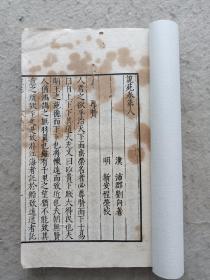 說苑卷第八
漢 沛郡劉向著
明 新安程榮校
尊賢
人君之欲平治天下而垂榮名者必尊賢而下士易
曰自上下下其道大光又曰以貴下賤大得民也夫
明王之施德而下下也將懷遠而致近也夫朝無賢
人猶鴻鵠之無羽翼也雖有千里之望猶不能致其
意之所欲至矣是故絶江海者託於船致遠道者託